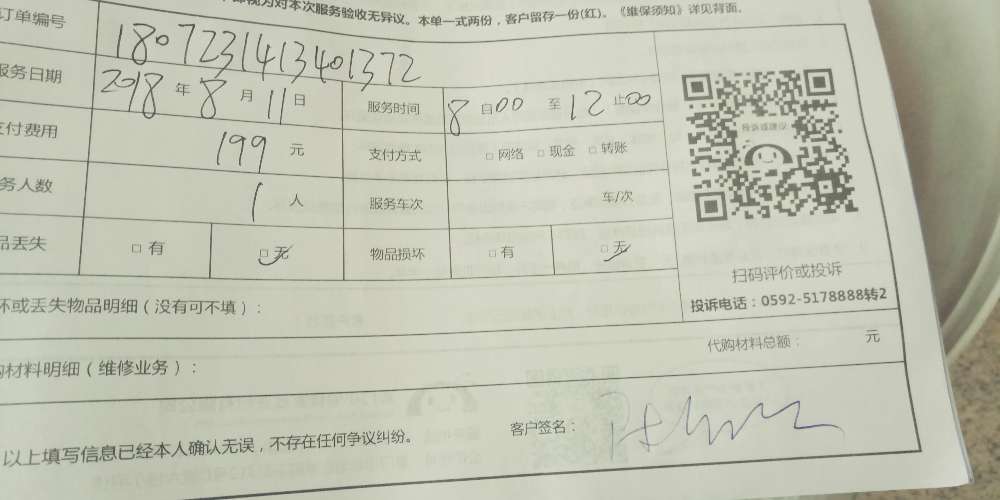 视为对本次服务验收无异议。本单一式两份，客户留存一份(红)。《维保须知》详见背面。
订单编号 1807231413401372
服务日期 2018 年 8 月 11 日 服务时间 8 自00 至 12 止00
支付费用 199 元 支付方式 □ 网络 □ 现金 □ 转账
务人数 1 人 服务车次 车/次
品丢失 □ 有 □ 无 物品损坏 □ 有 □ 无
投诉或建议
扫码评价或投诉
投诉电话：0592-5178888转2
坏或丢失物品明细（没有可不填）：
代购材料总额： 元
购材料明细（维修业务）：
以上填写信息已经本人确认无误，不存在任何争议纠纷。 客户签名：